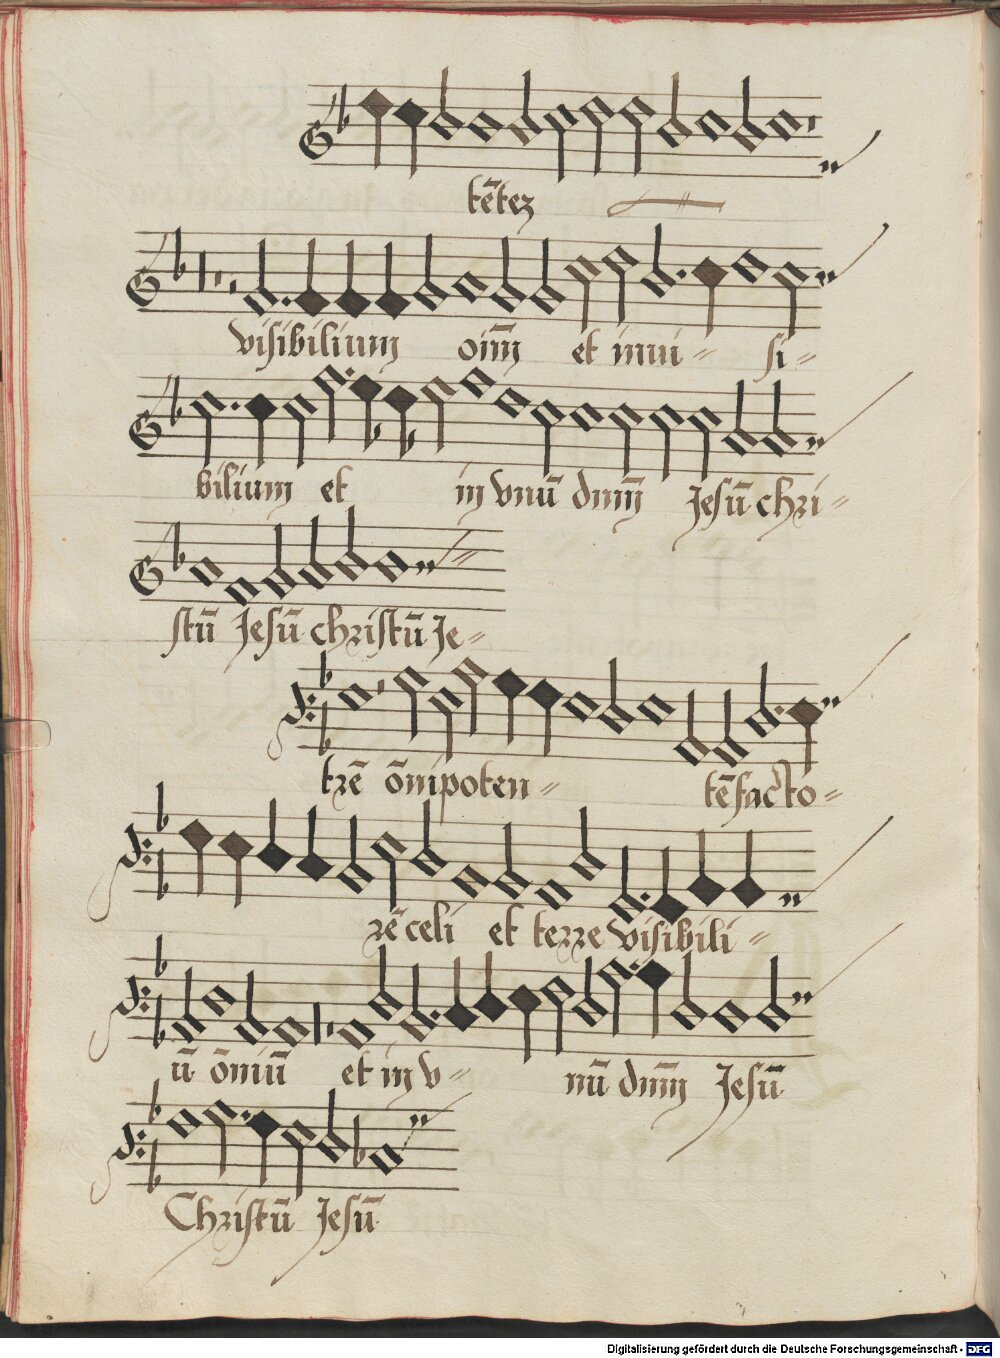 tētez
visibilium oīm et inui= si=
bilium et in vnū dnm̄ Jesū chri=
stū Jesū christū Je=
tzē ōnipoten= tē factō=
zē celi et terre visibili=
ū ōniū et in v= nū dnm̄ Jesū
Christū Jesū
Digitalisierung gefördert durch die Deutsche Forschungsgemeinschaft - DFG